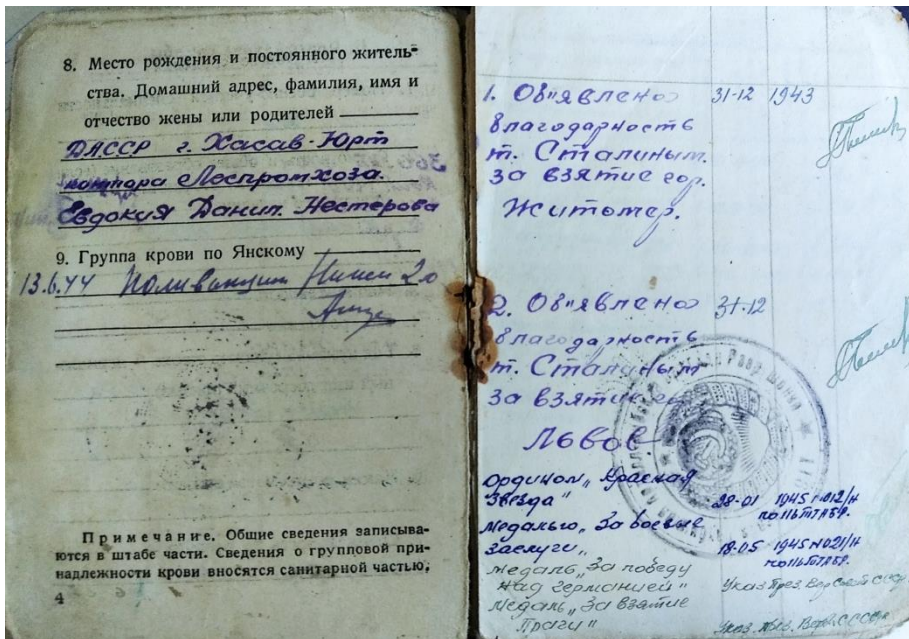 8. Место рождения и постоянного житель-
ства. Домашний адрес, фамилия, имя и
отчество жены или родителей
ДАССР г. Хасав-Юрт
контора Леспромхоза.
Евдокия Данил. Нестерова
9. Группа крови по Янскому
13.6.44
Примечание. Общие сведения записыва-
ются в штабе части. Сведения о групповой при-
надлежности крови вносятся санитарной частью.
4
1. Об"явлено 31-12 1943
благодарность
т. Сталиным.
за взятие гор.
Житомер.
2. Об"явлено 31-12
благодарность
т. Сталиным
за взятие
Львов
ордином „Красная
Звезда" 28-01 1945 №012/н
Медалью „За боевые
заслуги„ 18-05 1945 №021/н
Медаль „За победу
над германией"
Медаль „За взятие
Праги"